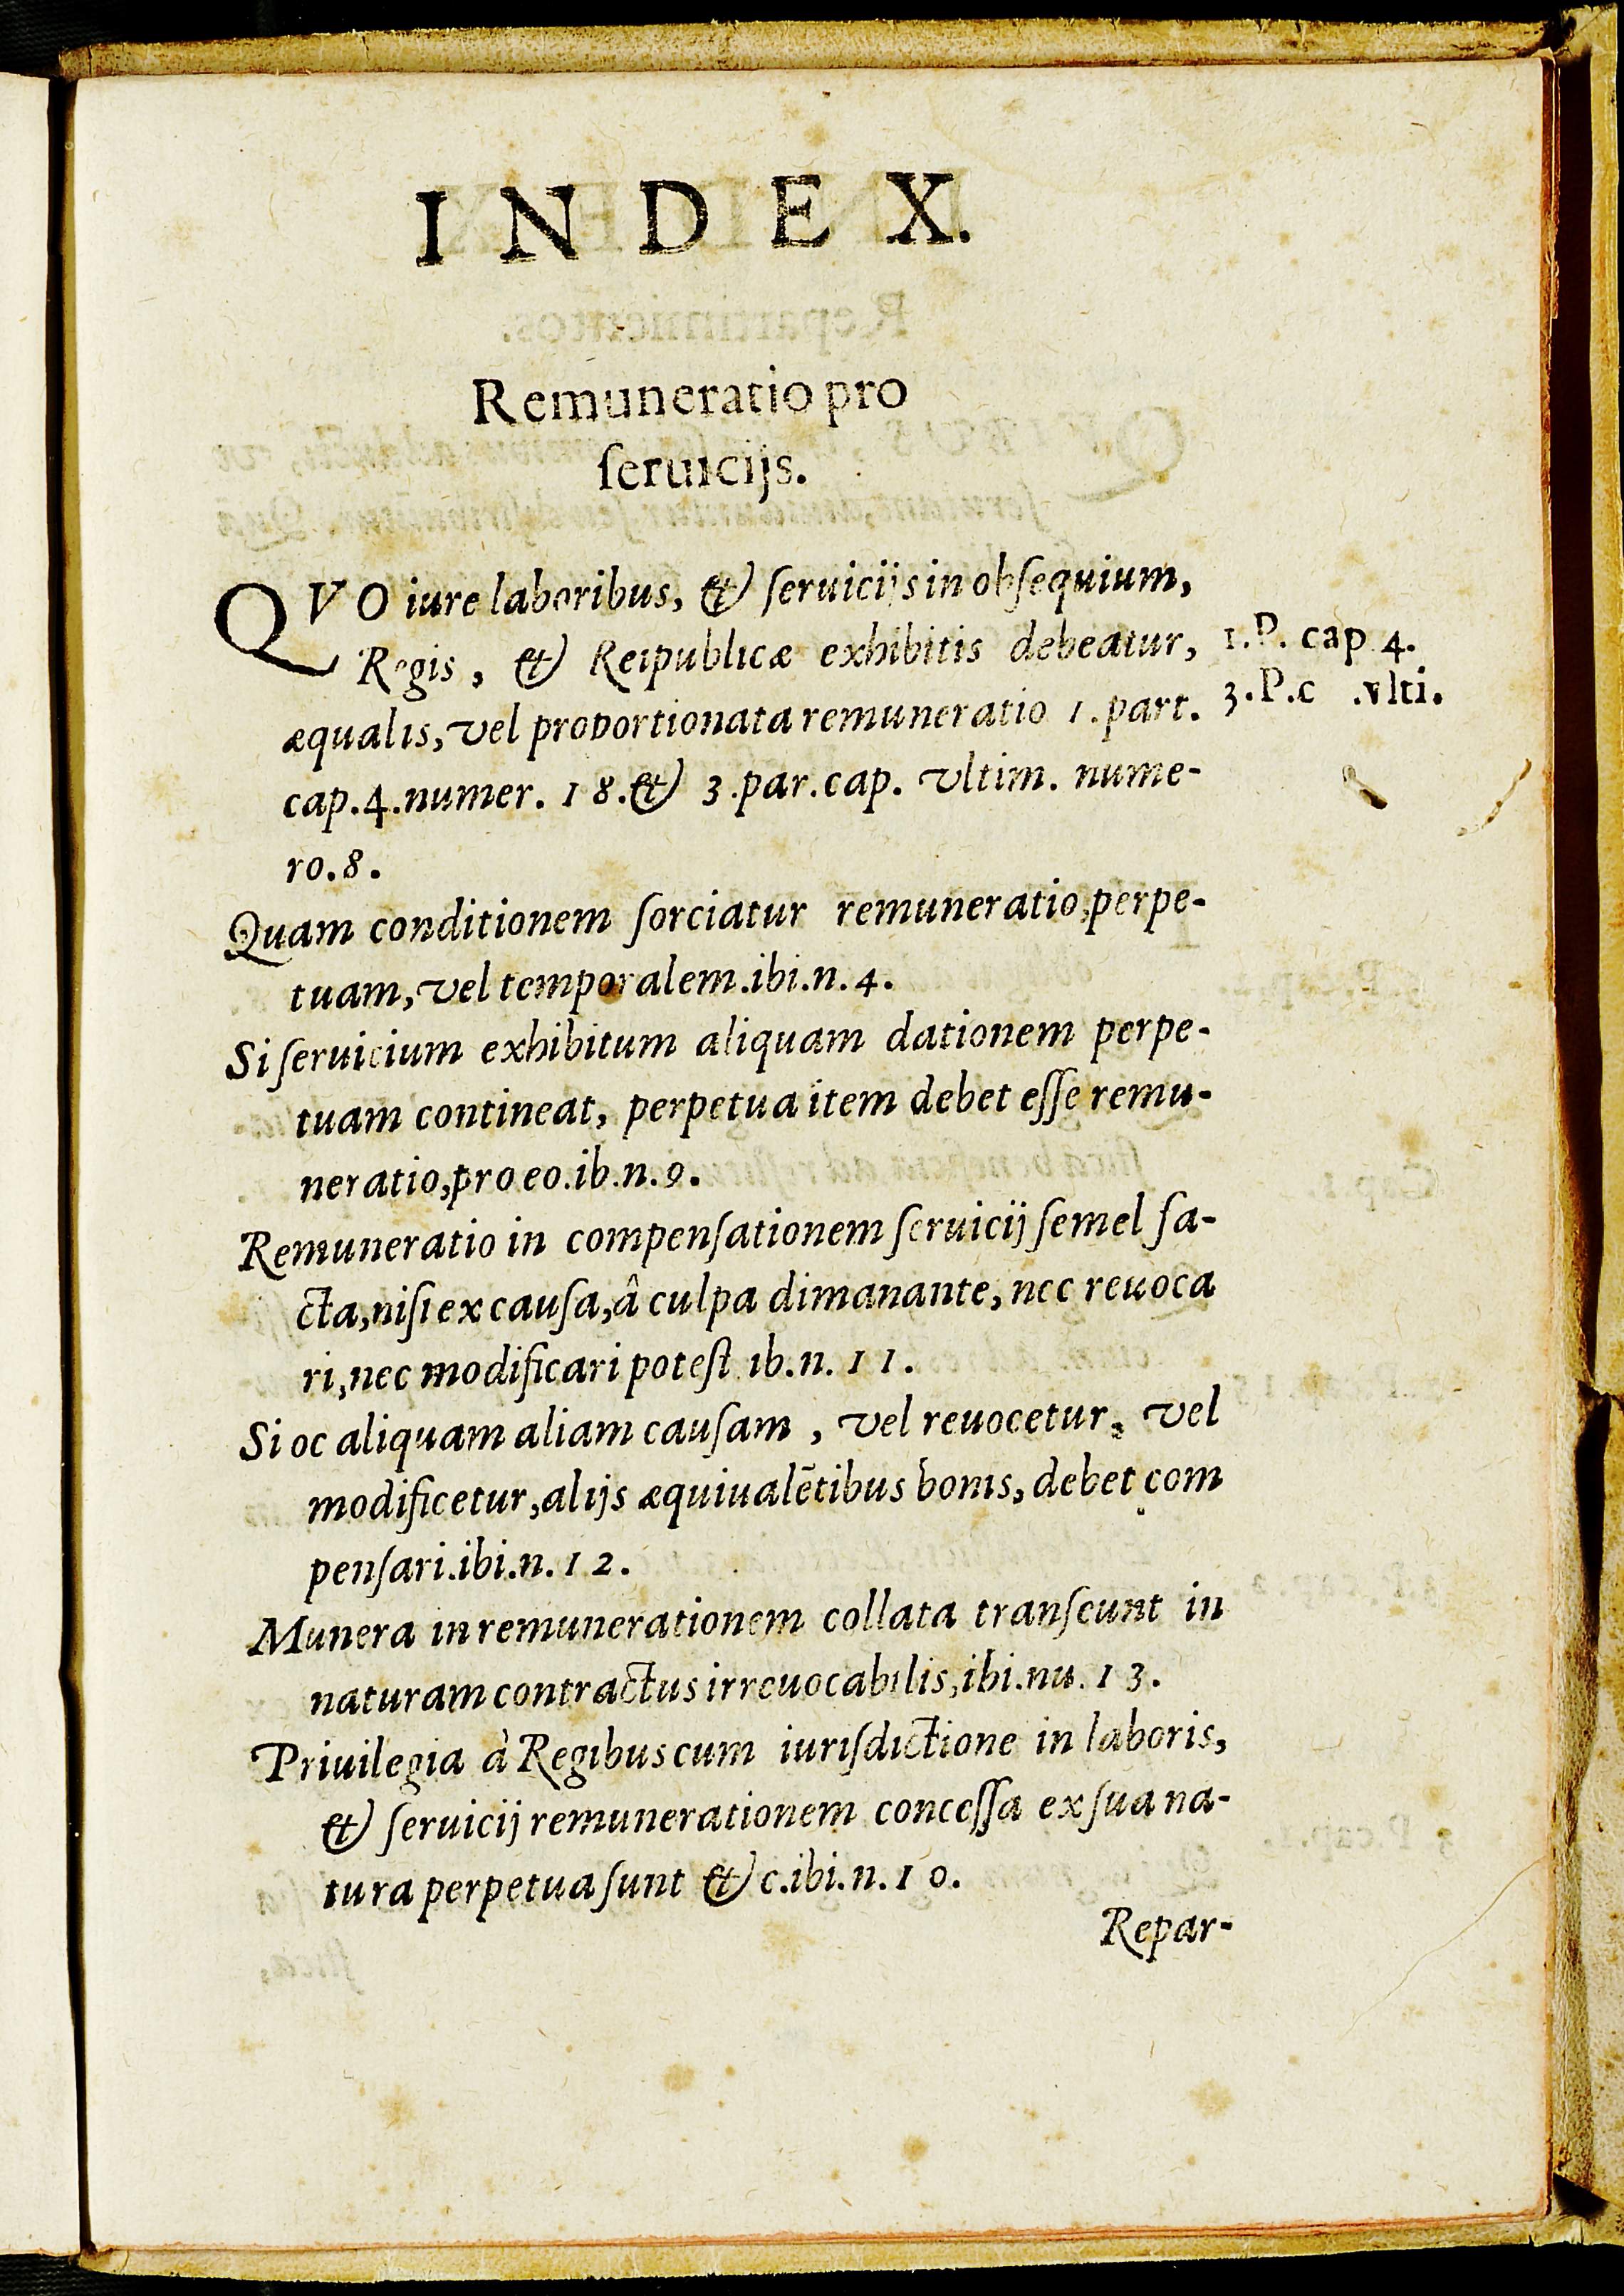 INDEX.
Remuneratio pro
ſeruicijs.
QVO iure laboribus, & ſeruicijs in obſequium,
Regis, & Reipublicæ exhibitis debeatur,
1.P. cap 4.
æqualis, vel proportionata remuneratio 1.part.
3.P.c .vlti.
cap.4.numer. 18.& 3.par.cap. vltim. nume-
ro.8.
Quam conditionem ſorciatur remuneratio, perpe-
tuam, vel temporalem.ibi.n.4.
Si ſeruicium exhibitum aliquam dationem perpe-
tuam contineat, perpetua item debet eſſe remu-
neratio, pro eo.ib.n.9.
Remuneratio in compenſationem ſeruicij ſemel fa-
cta, niſi ex cauſa, â culpa dimanante, nec reuoca
ri, nec modificari poteſt ib.n. 11.
Si oc aliquam aliam cauſam, vel reuocetur, vel
modificetur, alijs æquiualētibus bonis, debet com
penſari.ibi.n.12.
Munera in remunerationem collata tranſeunt in
naturam contractus irreuocabilis, ibi.nu. 13.
Priuilegia à Regibus cum iuriſdictione in laboris,
& ſeruicij remunerationem conceſſa ex ſua na-
tura perpetua ſunt &c.ibi.n.10.
Repar-